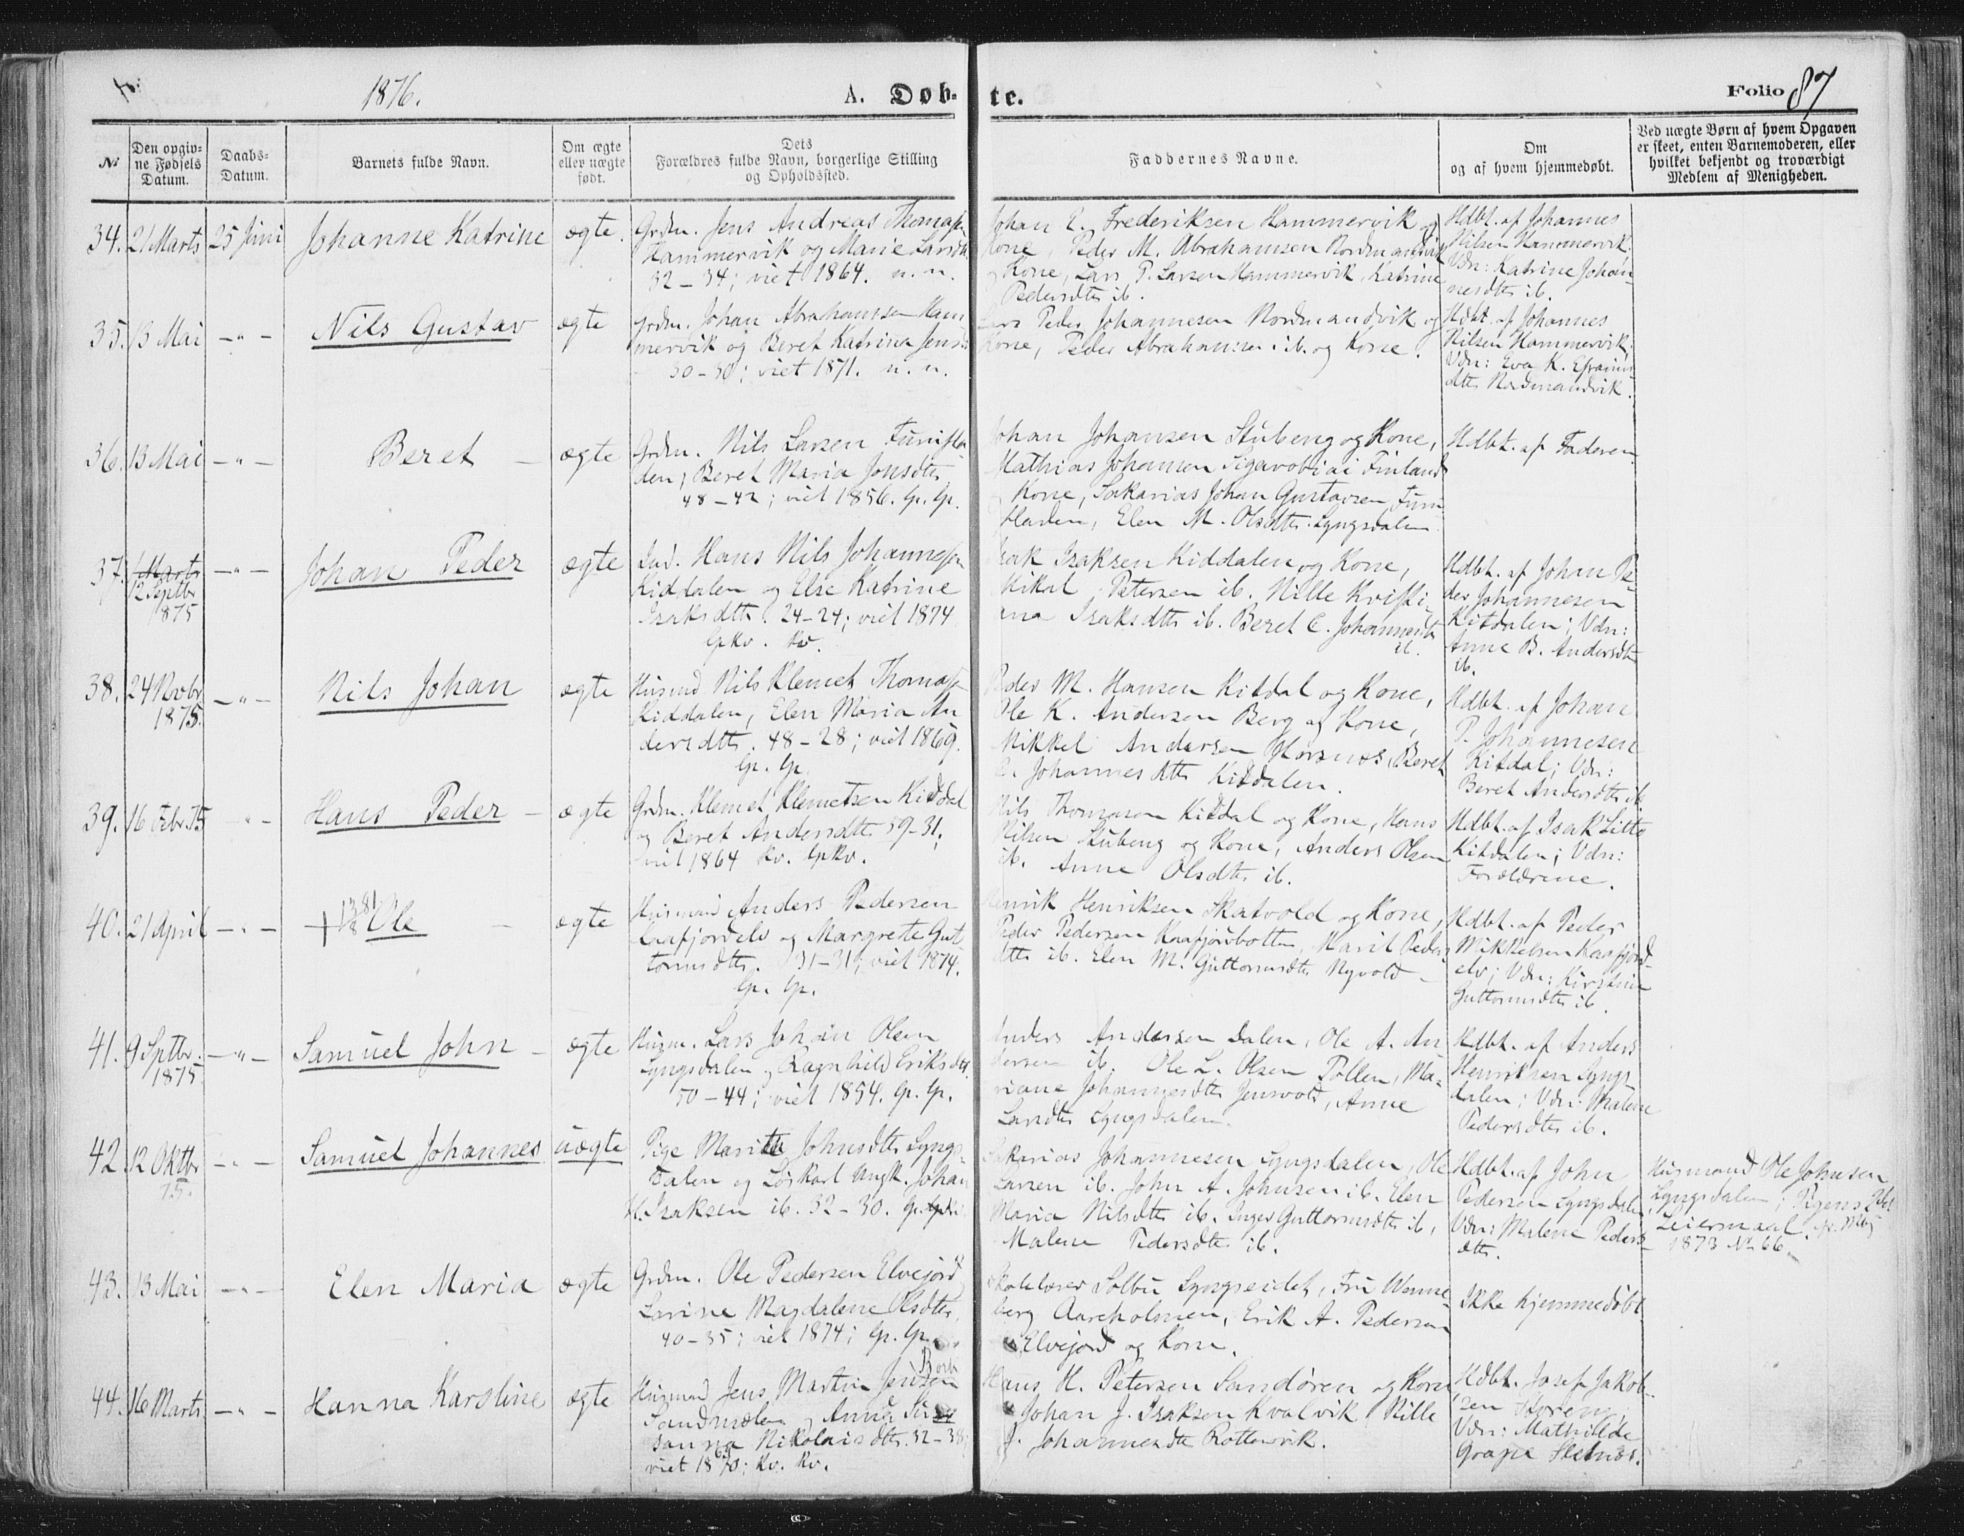 1876.
A. Døb-
te.
Folio 87
No
Den opgiv-
ne Fødsels
Datum.
Daabs-
Datum.
Barnets fulde Navn.
Om ægte
eller uægte
født.
Dets
Forældres fulde Navn, borgerlige Stilling
og Opholdssted.
Faddernes Navne.
Om
og af hvem hjemmedøbt.
Ved uægte Børn af hvem Opgaven
er skeet, enten Barnemoderen, eller
hvilket bekjendt og troværdigt
Medlem af Menigheden.
34. 21 Marts 25 Juni Johanne Katrine ægte.
Grdm. Jens Andreas
Hammervik og Marie
32-34; viet 1864. n. n.
Johan E. Frederiksen Hammervik og
Kone, Peder M. Abrahamsen Nordmandvik
og Kone, Lars P. Larsen Hammervik, Katrine
Pedersdtr ib.
Hdbt. af Johannes
Nilsen Hammervik.
Vdn: Katrine Johan-
nesdtr ib.
35. 13 Mai -"- Nils Gustav ægte
Grdm. Johan Abrahamsen Ham
mervik og Beret Katrina
30-30; viet 1871. n. n.
Peder Johannesen Nordmandvik og
Kone, Peder Abrahamsen ib. og Kone.
Hdbt. af Johannes
Nilsen Hammervik,
Vdn: Eva K. Efraims
dtr Nordmandvik.
36. 13 Mai -"- Beret - ægte
Grdm. Nils Larsen
den, Beret Maria Jonsdtr
48-42; viet 1856. lp. lp.
Johan Johansen Stubeng og Kone,
Mathias Johansen Finland
og Kone, Sakarias Johan Gustavsen Furu
fladen, Elen M. Olsdtr Lyngsdalen
Hdbt. af Faderen
37. 1 Marts
12 Septbr
1875
-"- Johan Peder ægte
Ind. Hans Nils
Kiddalen og Else Katrine
Isaksdtr. 24-24; viet 1874
lpkv. kv.
Isak Isaksen Kiddalen og Kone,
Mikal Petersen ib. Nille Kristi-
ana Isaksdtr ib. Beret C. Johannesdtr
ib.
Hdbt. af Johan Pe-
der Johannesen
Kitdalen; Vdn:
Anne B. Andersdtr
ib.
38. 24 Novbr
1875.
-"- Nils Johan ægte
Husmd Nils Klemet
Kiddalen, Elen Maria An
dersdtr. 48-28; viet 1869.
lp. lp.
Peder M. Hansen Kitdal og Kone,
Ole K. Andersen Berg og Kone,
Mikkel Andersen Horsnes, Beret
C. Johannesdtr Kitdalen.
Hdbt. af Johan
P. Johannesen
Kitdal; Vdn:
Beret Andersdtr ib.
39. 16 Febr. 75 -"- Hans Peder - ægte
Grdm. Klemet Klemetsen Kiddal
og Beret Andersdtr 39-31;
viet 1864 kv. lpkv.
Nils Thomassen Kitdal og Kone, Hans
Nilsen Stubeng og Kone, Anders Olsen
ib. Anne Olsdtr ib.
Hdbt. af Isak
Kitdalen; Vdn:
Forældrene.
40. 21 April -"- Ole - ægte
Husmand Anders Pedersen
Kaafjordelv og Margrete Gut
tormsdtr. 31-31; viet 1874.
lp. lp.
Henrik Henriksen Skatvold og Kone,
Peder Pedersen Kaafjordbotten, Marit Peders
dtr ib. Elen M. Guttormsdtr Nyvold -
Hdbt. af Peder
Mikkelsen Kaafjord-
elv; Vdn: Kirstine
Guttormsdtr ib.
41. 9 Sptbr.
1875
-"- Samuel John - ægte
Husm. Lars Johan Olsen
Lyngsdalen og Ragnhild Eriksdtr
50-44; viet 1854. lp. lp.
Anders Andersen Dalen, Ole A. An
dersen ib. Ole L. Olsen Pollen, Ma-
riane Johannesdtr Jensvold, Anne
Larsdtr Lyngsdalen.
Hdbt. af Anders
Henriksen Lyngs-
dalen; Vdn: Malene
Pedersdtr ib.
42. 12 Oktbr
75.
-"- Samuel Johannes uægte
Pige Marit Johnsdtr Lyngs-
dalen og Løskarl Ungk. Johan
H. Isaksen ib. 32-30.
Sakarias Johannesen Lyngsdalen, Ole
Larsen ib. John A. Johnsen ib. Elen
Maria Nilsdtr ib. Inger Guttormsdtr ib,
Malene Pedersdtr ib.
Hdbt. af John
Pedersen Lyngsdalen
Vdn: Malene Peders-
dtr.
Husmand Ole Johnsen
Lyngsdalen; Pigens 2det
Leiermaal.
1873 No 66.
43. 13 Mai -"- Elen Maria ægte
Grdm. Ole Pedersen Elvejord
Lavine Magdalene Olsdtr.
40-35; viet 1874; lp. lp.
Skolelærer Solbu Lyngseidet, Fru Wenne-
berg Aareholmen, Erik A. Pedersen
Elvejord og Kone.
Ikke hjemmedøbt
44. 16 Marts -"- Hanna Karoline ægte
Husmand Jens Martin Jensen
Sandmælen og Anna
Nikolaisdtr. 32-38;
viet 1870; kv. kv.
Hans H. Petersen Sandøren og Kone
Johan J. Isaksen Kvalvik, Nille
J. Johannesdtr Rottenvik.
Hdbt. Josef Jakob-
sen
Vdn: Mathilde
Grape